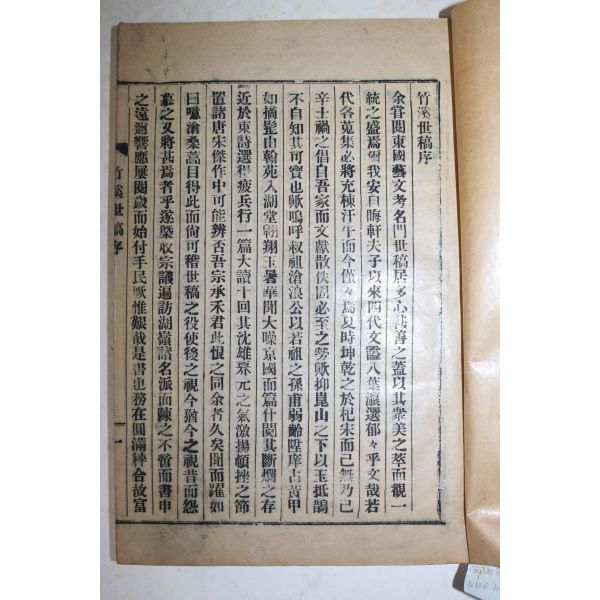 竹溪世稿序
余嘗閱東國藝文考名門世稿居多心甚善之蓋以其衆美之萃而觀一
統之盛焉爾我安自晦軒夫子以來四代文謚八葉瀛選郁々乎文哉若
代各蒐集必將充棟汗牛而今僅々焉夏時坤乾之於杞宋而已無乃己
辛士禍之倡自吾家而文獻散佚固必至之勢歟抑崑山之下以玉抵鵲
不自知其可寶也歟嗚呼叔祖滄浪公以若祖之孫甫弱齡陞庠占黃甲
如摘髭由翰苑入湖堂翱翔玉署華聞大噪京國而篇什閱其斷爛之存
近於東詩選得疲兵行一篇大讀十回其沈雄昇元之氣激揚頓挫之節
置諸唐宋傑作中可能辨否吾宗承禾君此恨之同余者久矣聞而躍如
曰噫滄桑蒿目得此而尙可稽世稿之役使後之視今猶今之視昔而怨
慕之又將甚焉者乎遂槩收宗議遍訪湖嶺諸名派面陳之不暫而書申
之遠邇響應屢閱歲而始付手民厥惟艱哉是書也務在圓滿梓合故富
竹溪世稿序
一